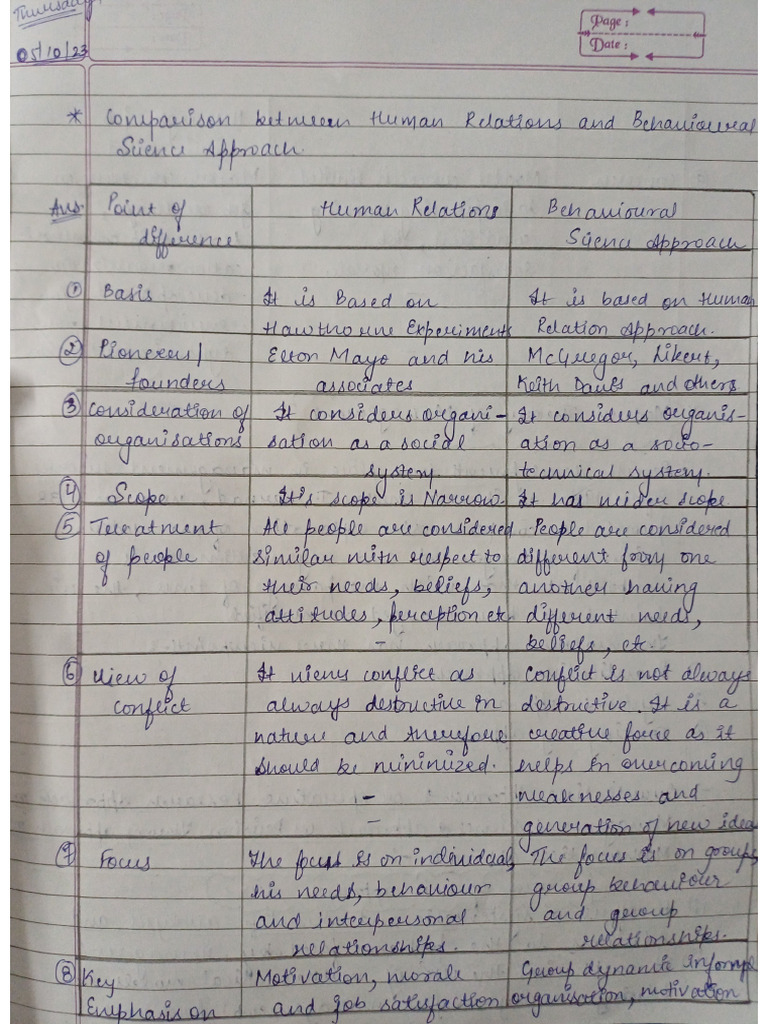 Thursday
05/10/23
Page :
Date :
* Comparison between Human Relations and Behavioural
Science Approach.
Ans. Point of difference | Human Relations | Behavioural Science Approach
① Basis | It is Based on Hawthorne Experiments | It is based on Human Relation Approach.
② Pioneers/founders | Elton Mayo and his associates | McGregor, Likert, Keith Davis and others
③ Consideration of organisations | It considers organi-sation as a social system | It considers organis-ation as a socio-technical system.
④ Scope | It's scope is Narrow. | It has wider scope
⑤ Treatment of people | All people are considered similar with respect to their needs, beliefs, attitudes, perception etc | People are considered different from one another having different needs, beliefs, etc.
⑥ View of conflict | It views conflict as always destructive in nature and therefore should be minimized. | Conflict is not always destructive. It is a creative force as it helps in overcoming weaknesses and generation of new idea
⑦ Focus | The focus is on individual, his needs, behaviour and interpersonal relationships. | The focus is on groups, group behaviour and group relationships.
⑧ Key Emphasis on | Motivation, morale and job satisfaction | Group dynamic informal organisation, motivation